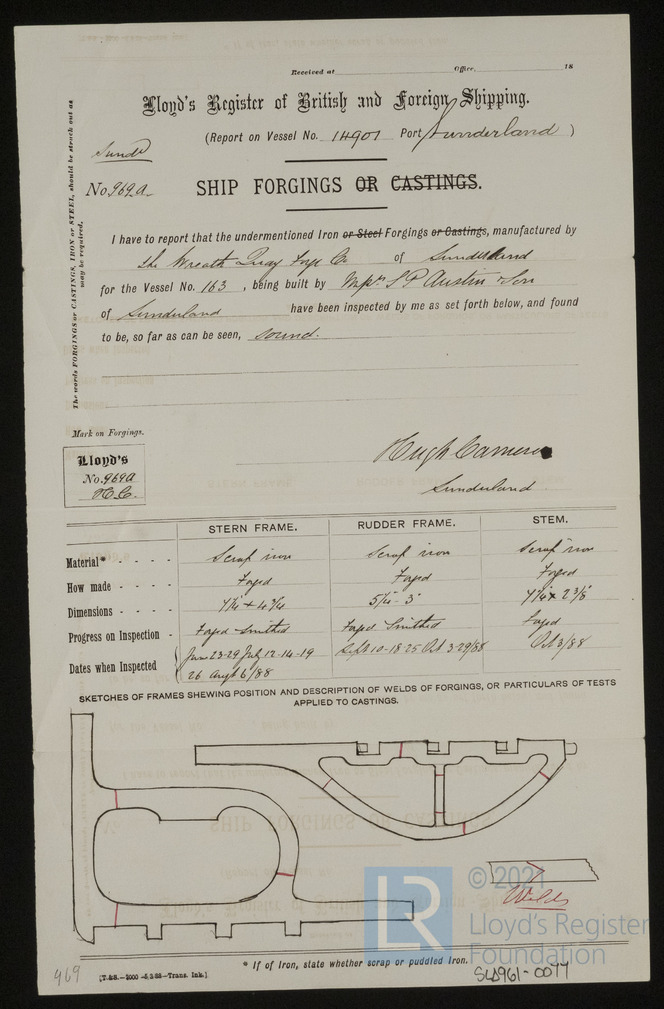 Received at Office, 18
Lloyd's Register of British and Foreign Shipping.
(Report on Vessel No. 14901 Port Sunderland)
Sund
No. 969A
SHIP FORGINGS OR CASTINGS.
The words FORGINGS or CASTINGS, IRON or STEEL, should be struck out as may be required.
I have to report that the undermentioned Iron or Steel Forgings or Castings, manufactured by
the Wreath Quay Forge Co of Sunderland
for the Vessel No. 163, being built by Messrs S P Austin & Son
of Sunderland have been inspected by me as set forth below, and found
to be, so far as can be seen, sound.
Mark on Forgings.
Lloyd's
No. 969A
H.C.
Hugh Cameron
Sunderland
STERN FRAME. RUDDER FRAME. STEM.
Material* - - - - Scrap iron Scrap iron Scrap iron
How made - - - - Forged Forged Forged
Dimensions - - - - 7¼ × 4¾ 5¼ - 3" 7¼ × 2⅜
Progress on Inspection - Forged Smithed Forged Smithed Forged
Dates when Inspected Jun 23-29 July 12-14-19 Sept 10-18 25 Oct 3-29/88 Oct 3/88
26 Augt 6/88
SKETCHES OF FRAMES SHEWING POSITION AND DESCRIPTION OF WELDS OF FORGINGS, OR PARTICULARS OF TESTS
APPLIED TO CASTINGS.
Welds
© 2021
LR
Lloyd's Register
Foundation
* If of Iron, state whether scrap or puddled Iron.
969
[T.&S.—2000—5,3/88—Trans. Ink.]
SLD961-0077